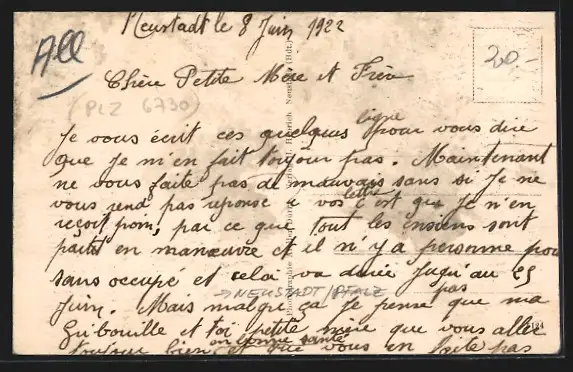 Neustadt le 8 Juin 1922
All
20-
Chère Petite Mère et Frère
PLZ 6730
Je vous écrit ces quelques ligne pour vous dire
que je m'en fait toujour pas. Maintenant
ne vous faite pas de mauvais sans si Je ne
vous rend pas reponse a vos lettre c'est que Je n'en
reçoit poin, par ce que tout les ensiens sont
partit en manœuvre et il n'y a personne pou
sans occupé et celai va durée Juqu'au 25
→NEUSTADT/PFALZ
Juin. Mais malgré ça Je pense pas que ma
Gribouille et toi petite mère que vous allée
toujour bien en bonne santé et que vous en faite pas